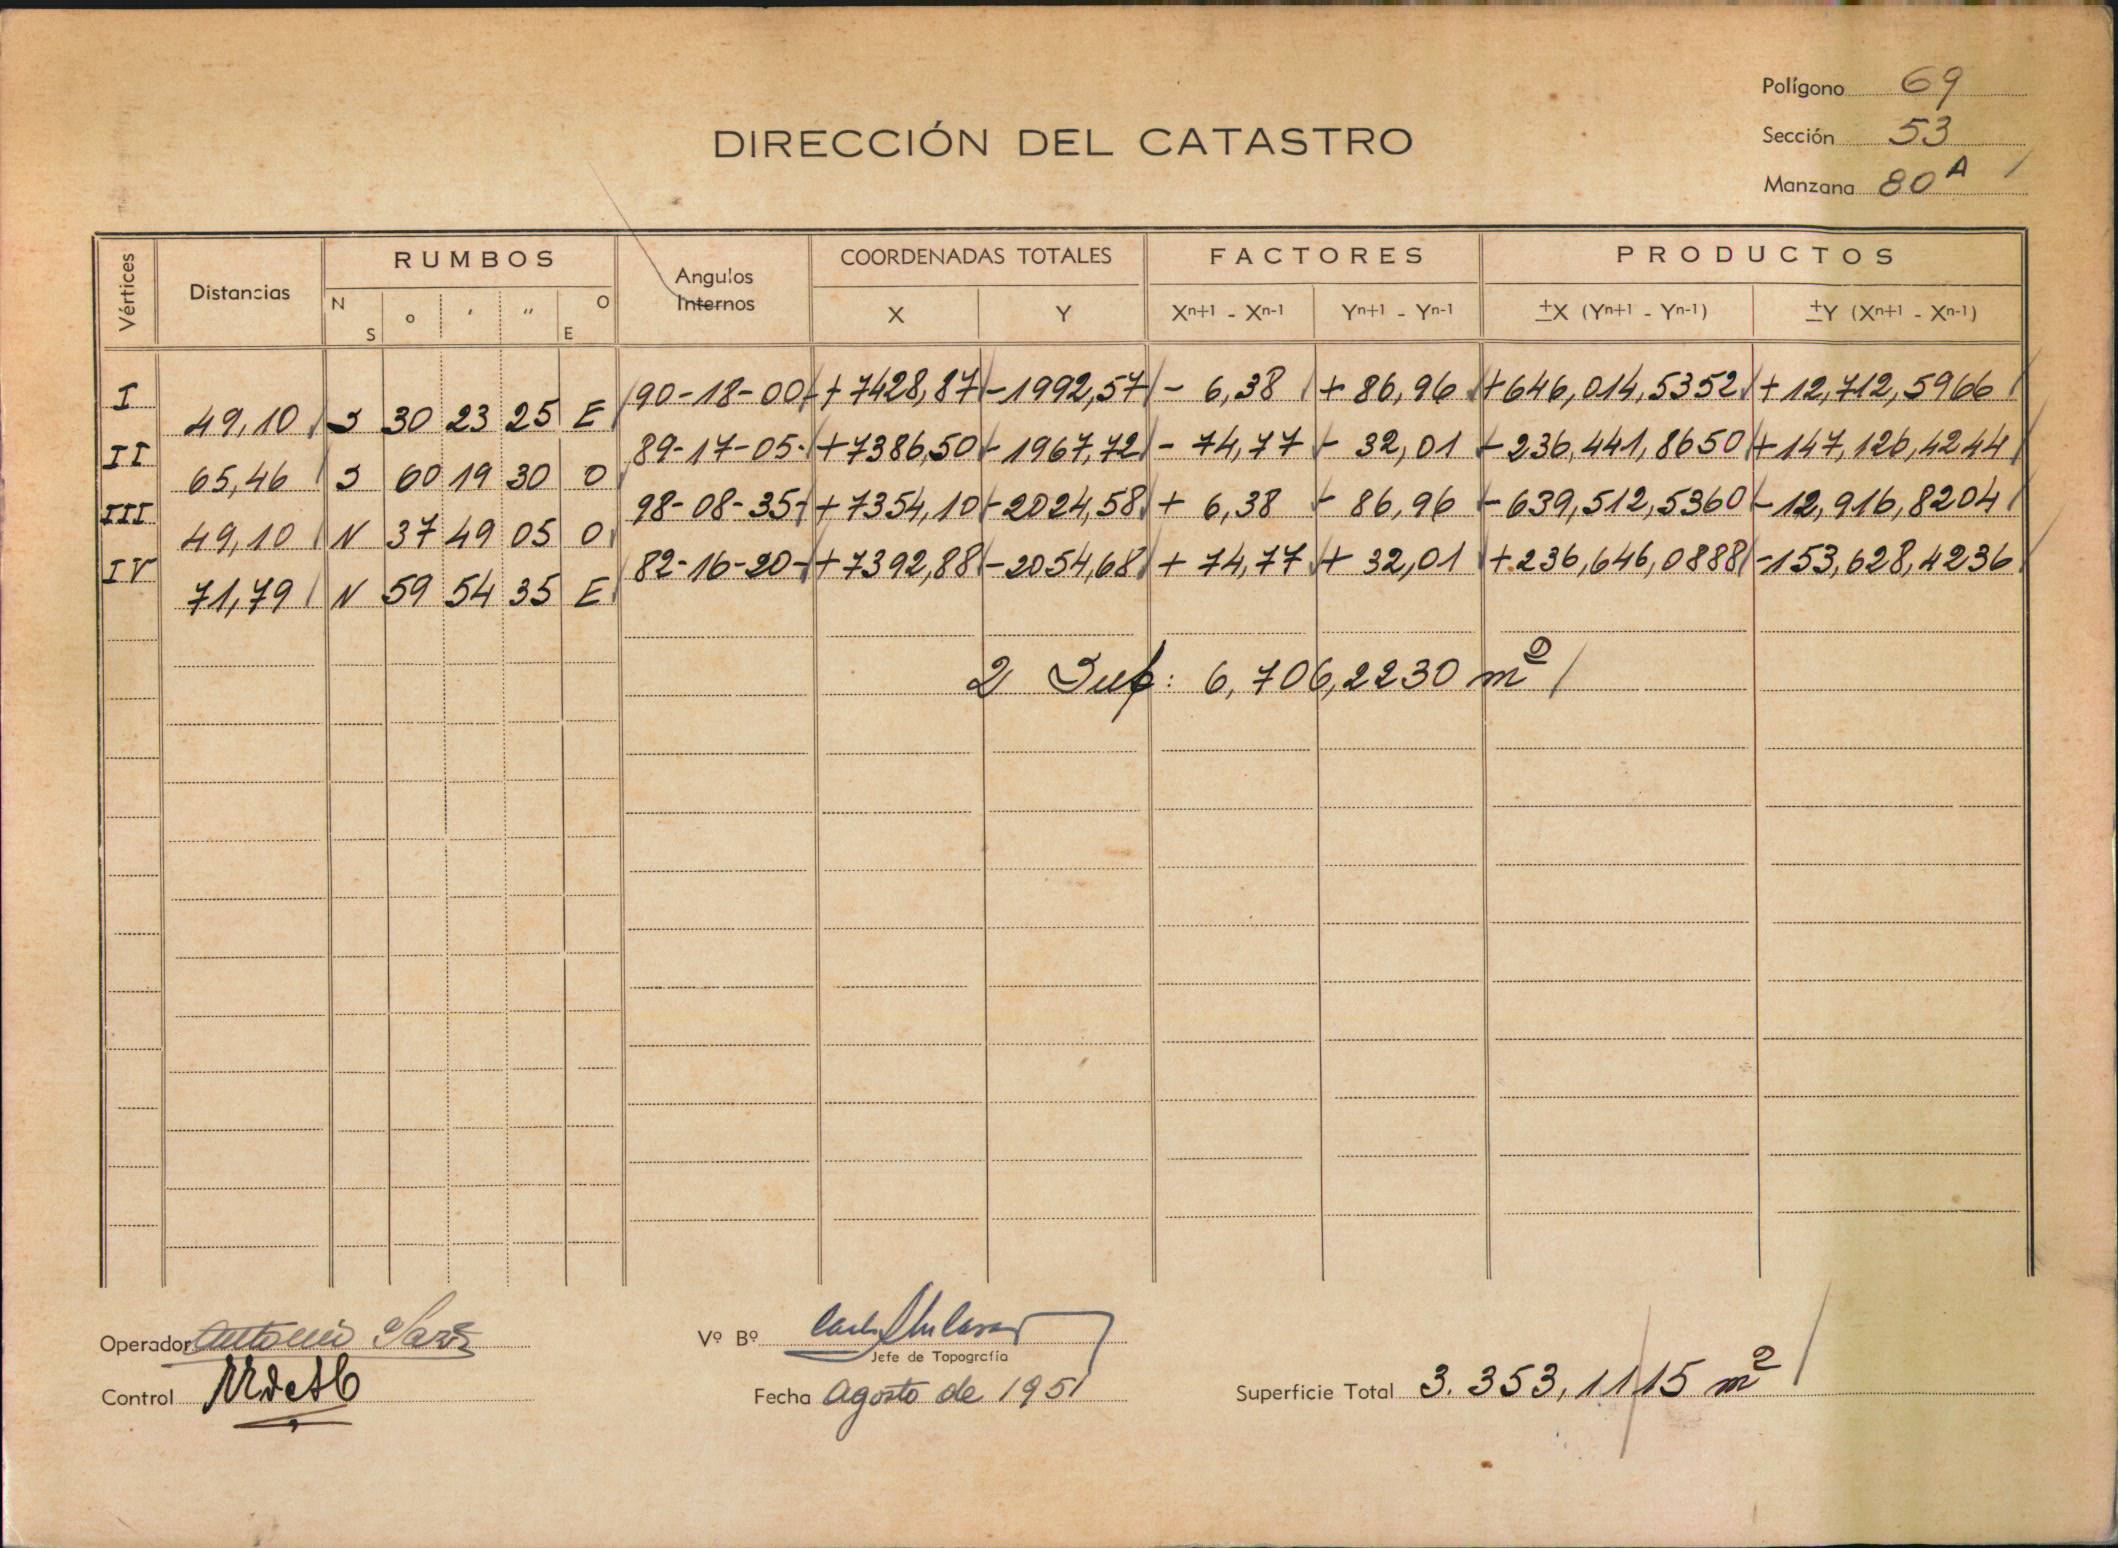 Polígono 69
DIRECCIÓN DEL CATASTRO
Sección 53
Manzana 80 A
Vértices Distancias RUMBOS Angulos Internos COORDENADAS TOTALES FACTORES PRODUCTOS
N S o ' " O E X Y Xn+1 - Xn-1 Yn+1 - Yn-1 ±X (Yn+1 - Yn-1) ±Y (Xn+1 - Xn-1)
I 90-18-00 +7428,87 -1992,57 - 6,38 + 86,96 +646,014,5352 +12,712,5966
49,10 S 30 23 25 E
II 89-17-05 +7386,50 -1967,72 - 74,77 - 32,01 -236,441,8650 +147,126,4244
65,46 S 60 19 30 O
III 98-08-35 +7354,10 -2024,58 + 6,38 - 86,96 -639,512,5360 -12,916,8204
49,10 N 37 49 05 O
IV 82-16-20 +7392,88 -2054,68 + 74,77 + 32,01 +236,646,0888 -153,628,4236
71,79 N 59 54 35 E
2 Sup: 6,706,2230 m²
Operador Antonio
Vº Bº
Jefe de Topografía
Control
Fecha Agosto de 1951
Superficie Total 3.353,1115 m²